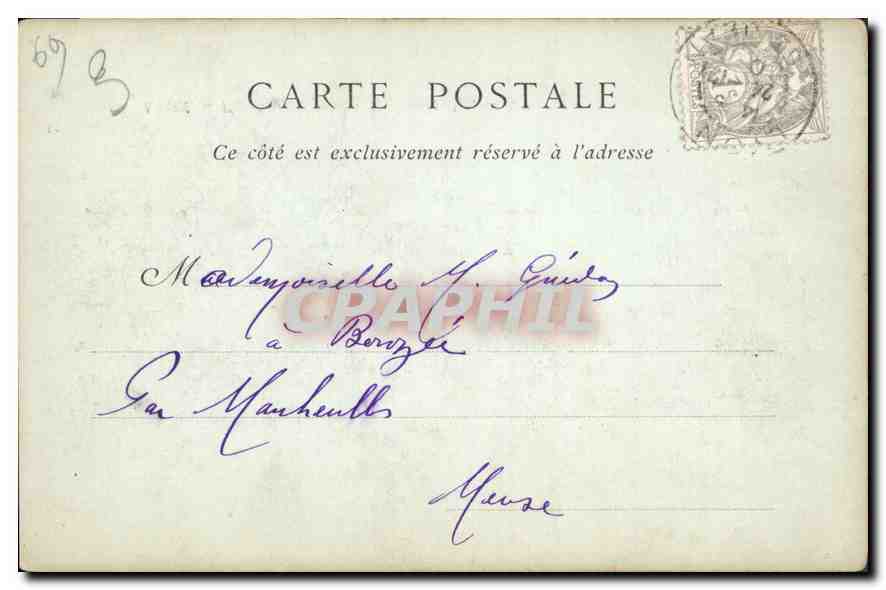 69
CARTE POSTALE
Ce côté est exclusivement réservé à l'adresse
Mademoiselle M.
CPAPHIL
à
Par Manheulles
Meuse